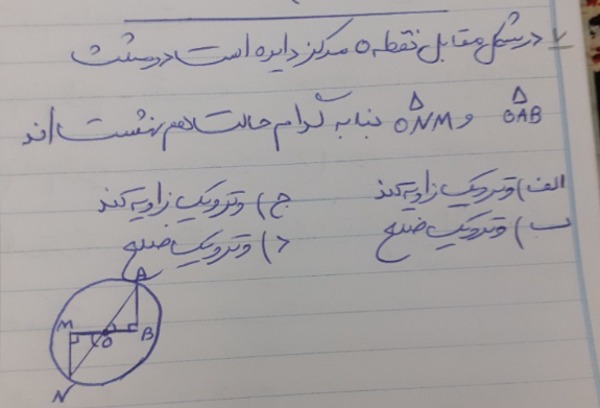 ۷ درشکل مقابل نقطه o مرکز دایره است دو مثلث
OAB و ONM بنا به کدام حالت هم نهشت اند
الف) وتر و یک زاویه تند
ج) وتر و یک زاویه تند
ب) وتر و یک ضلع
د) وتر و یک ضلع
A
M O B
N